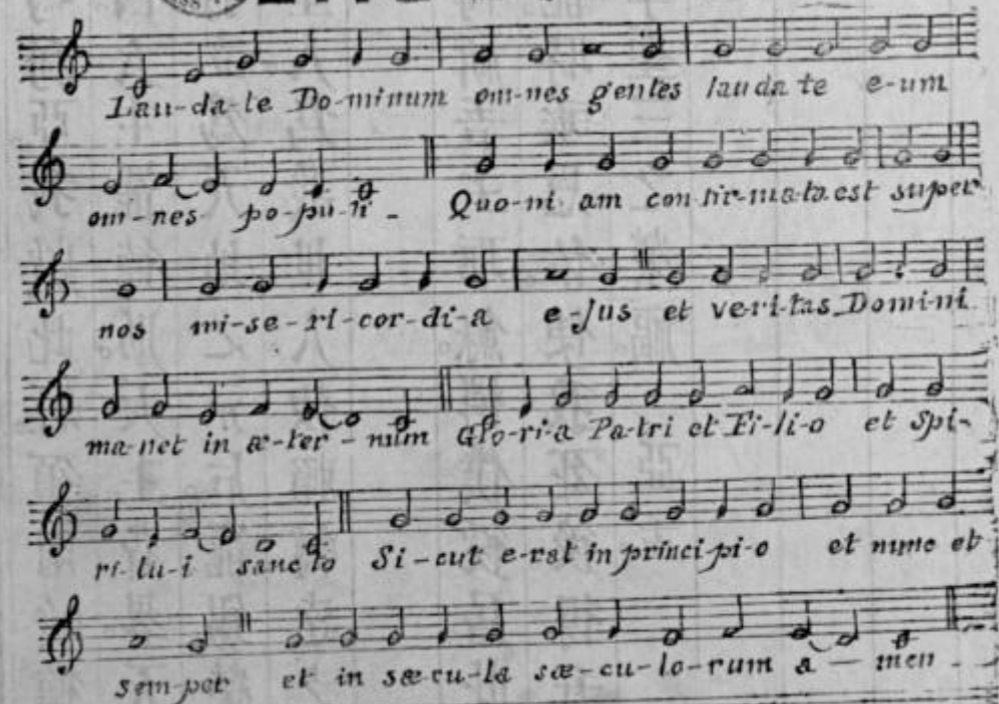 Lau-da-te Do-minum om-nes gentes lauda te e-um
om-nes po-pu-li - Quo-ni am con fir-ma-ta est super
nos mi-se-ri-cor-di-a e-jus et veri-tas Domini
ma-net in æ-ter-num Glo-ri-a Pa-tri et Fi-li-o et Spi-
ri-tu-i sanc to Si-cut e-rat in princi-pi-o et nunc et
sem-per et in sæ-cu-la sæ-cu-lo-rum a-men -